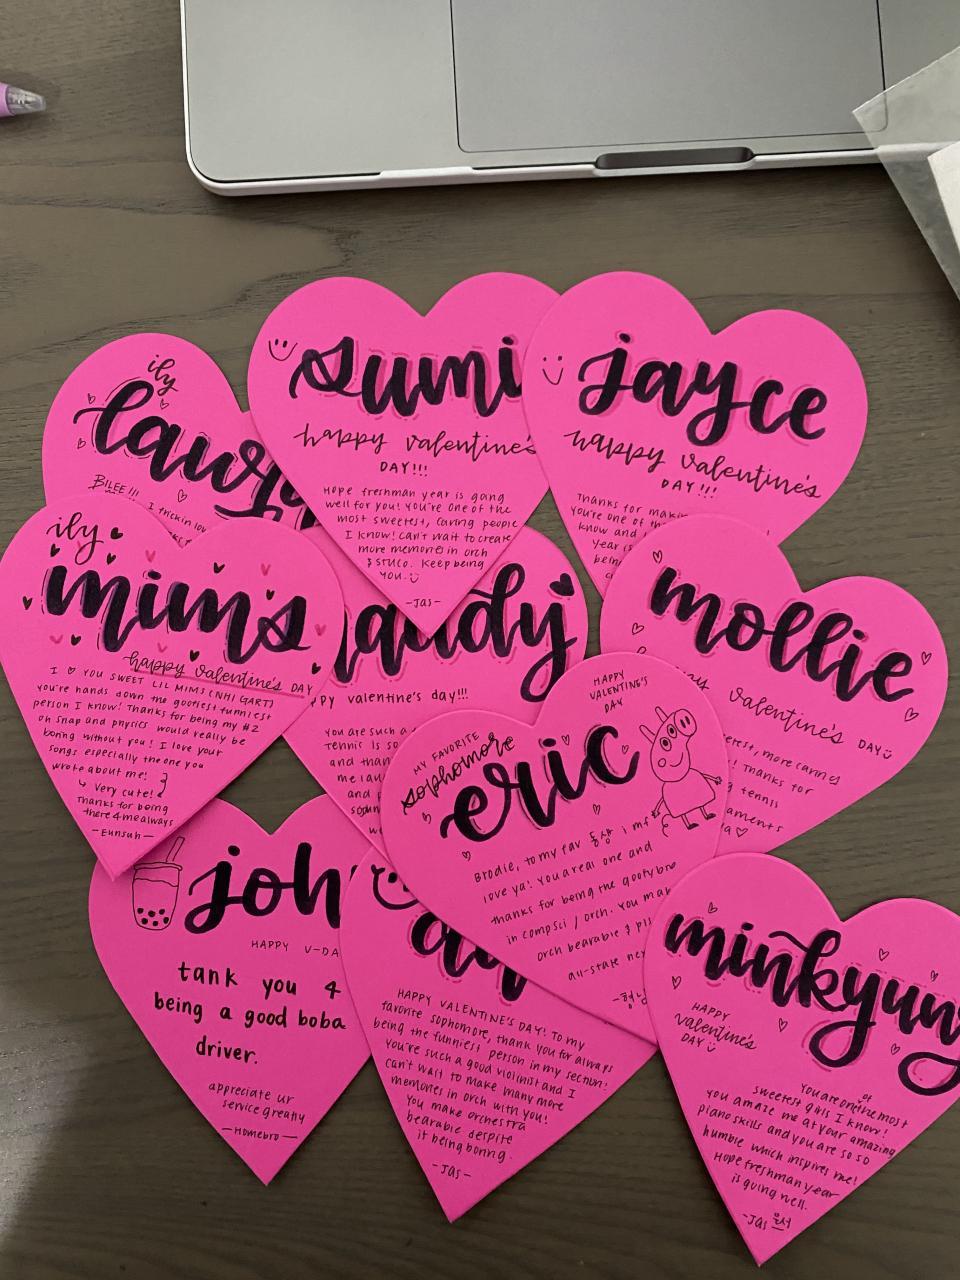 ily
BILEE!!!
sumi
happy valentine's
DAY!!!
Hope freshman year is going
well for you! you're one of the
most sweetest, caring people
I know! Can't wait to create
more memories in orch
& STUCO. Keep being
you.
-Jas-
jayce
happy valentine's
DAY!!!
Thanks for
you're one of
know and
year is
ily
mims
happy valentine's DAY
I ♡ YOU SWEET LIL MIMS (NHI GART)
you're hands down the goofiest funniest
person I know! Thanks for being my #2
on snap and physics would really be
boring without you! I love your
songs especially the one you
wrote about me!
↳ Very cute!
Thanks for being
there 4 me always
-Eunsuh-
valentine's day!!!
You are such a
Tennis is so
and
mollie
valentine's
DAY
more caring
! Thanks for
tennis
HAPPY
VALENTINE'S
DAY
MY FAVORITE
sophomore
eric
Brodie, to my fav 동생
love ya! You a real one and
thanks for being the goofy bro
in compsci / orch. You
orch bearable &
all-state
joh
HAPPY V-DA
tank you 4
being a good boba
driver.
appreciate ur
service greatly
-Homebro-
HAPPY VALENTINE'S DAY! To my
favorite sophomore, thank you for always
being the funniest person in my section!
You're such a good violinist and I
can't wait to make many more
memories in orch with you!
You make orchestra
bearable despite
it being boring.
-JAS-
minkyun
HAPPY
valentine's
DAY
You are one of the most
sweetest girls I know!
You amaze me at your amazing
piano skills and you are so so
humble which inspires me!
Hope freshman year
is going well.
-Jas 은서